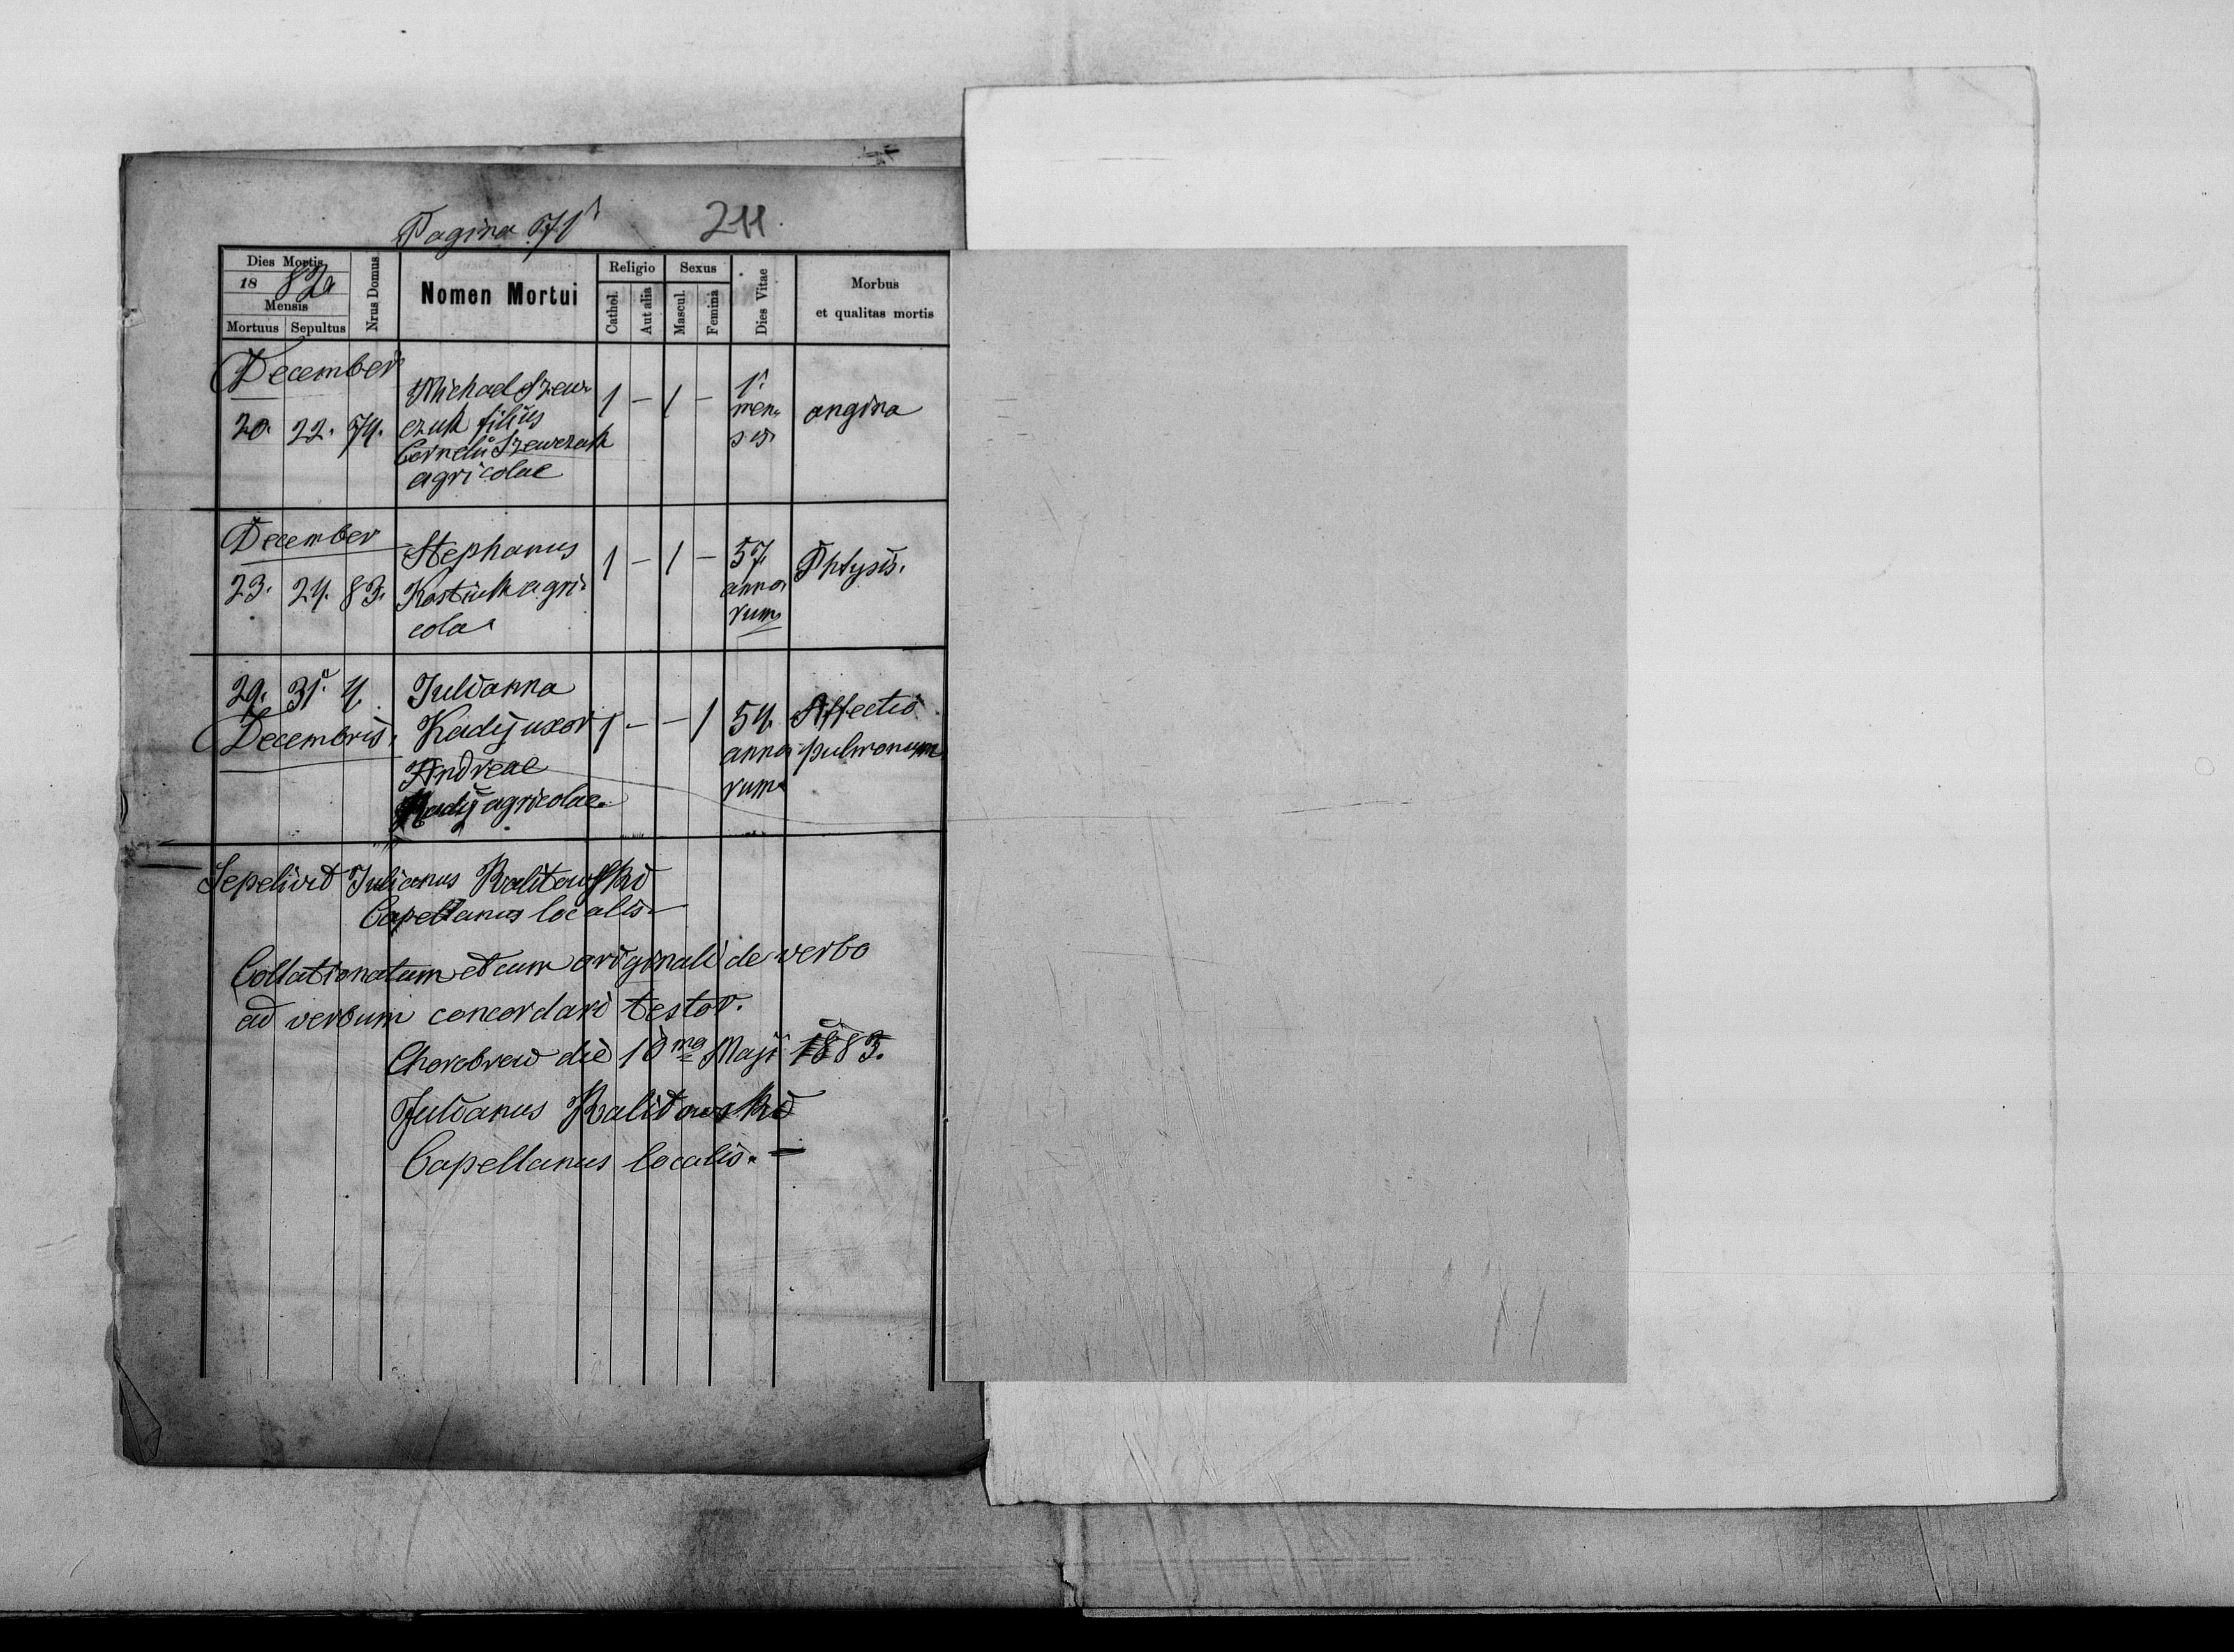 Pagina 71
211.
Dies Mortis
1882
Mensis
Mortuus Sepultus
Nrus Domus
Nomen Mortui
Religio
Cathol.
Aut alia
Sexus
Mascul.
Femina
Dies Vitae
Morbus
et qualitas mortis
December
20. 22. 74. Michael Szew- 1 - 1 - 1 angina
czuk filius men-
Cornelii Szewczuk sis
agricolae
December
23. 24. 83. Stephanus 1 - 1 - 57. Phtysis.
Kostiuk agri- anno-
cola rum
29. 31. 4. Julianna
Decembris. Kadij uxor 1 - - 1 54. Affectio
Andreae anno- pulmonum
Kadij agricolae. rum
Sepelivit Julianus Kalitowski
Capellanus localis
Collationatum et cum originali de verbo
ad verbum concordari testor.
Chorobrow die 10ma Maji 1883.
Julianus Kalitowski
Capellanus localis.